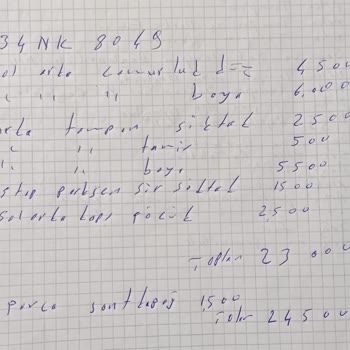 34 NK 8049
sol orta çamurluk 4500
" " " boya 6.000
arka tampon söktak 2500
" " tamir 500
" " boya 5500
stop 1500
sol orta kapı göçük 2500
Toplam 23 000
parça 1500
Toplam 24500